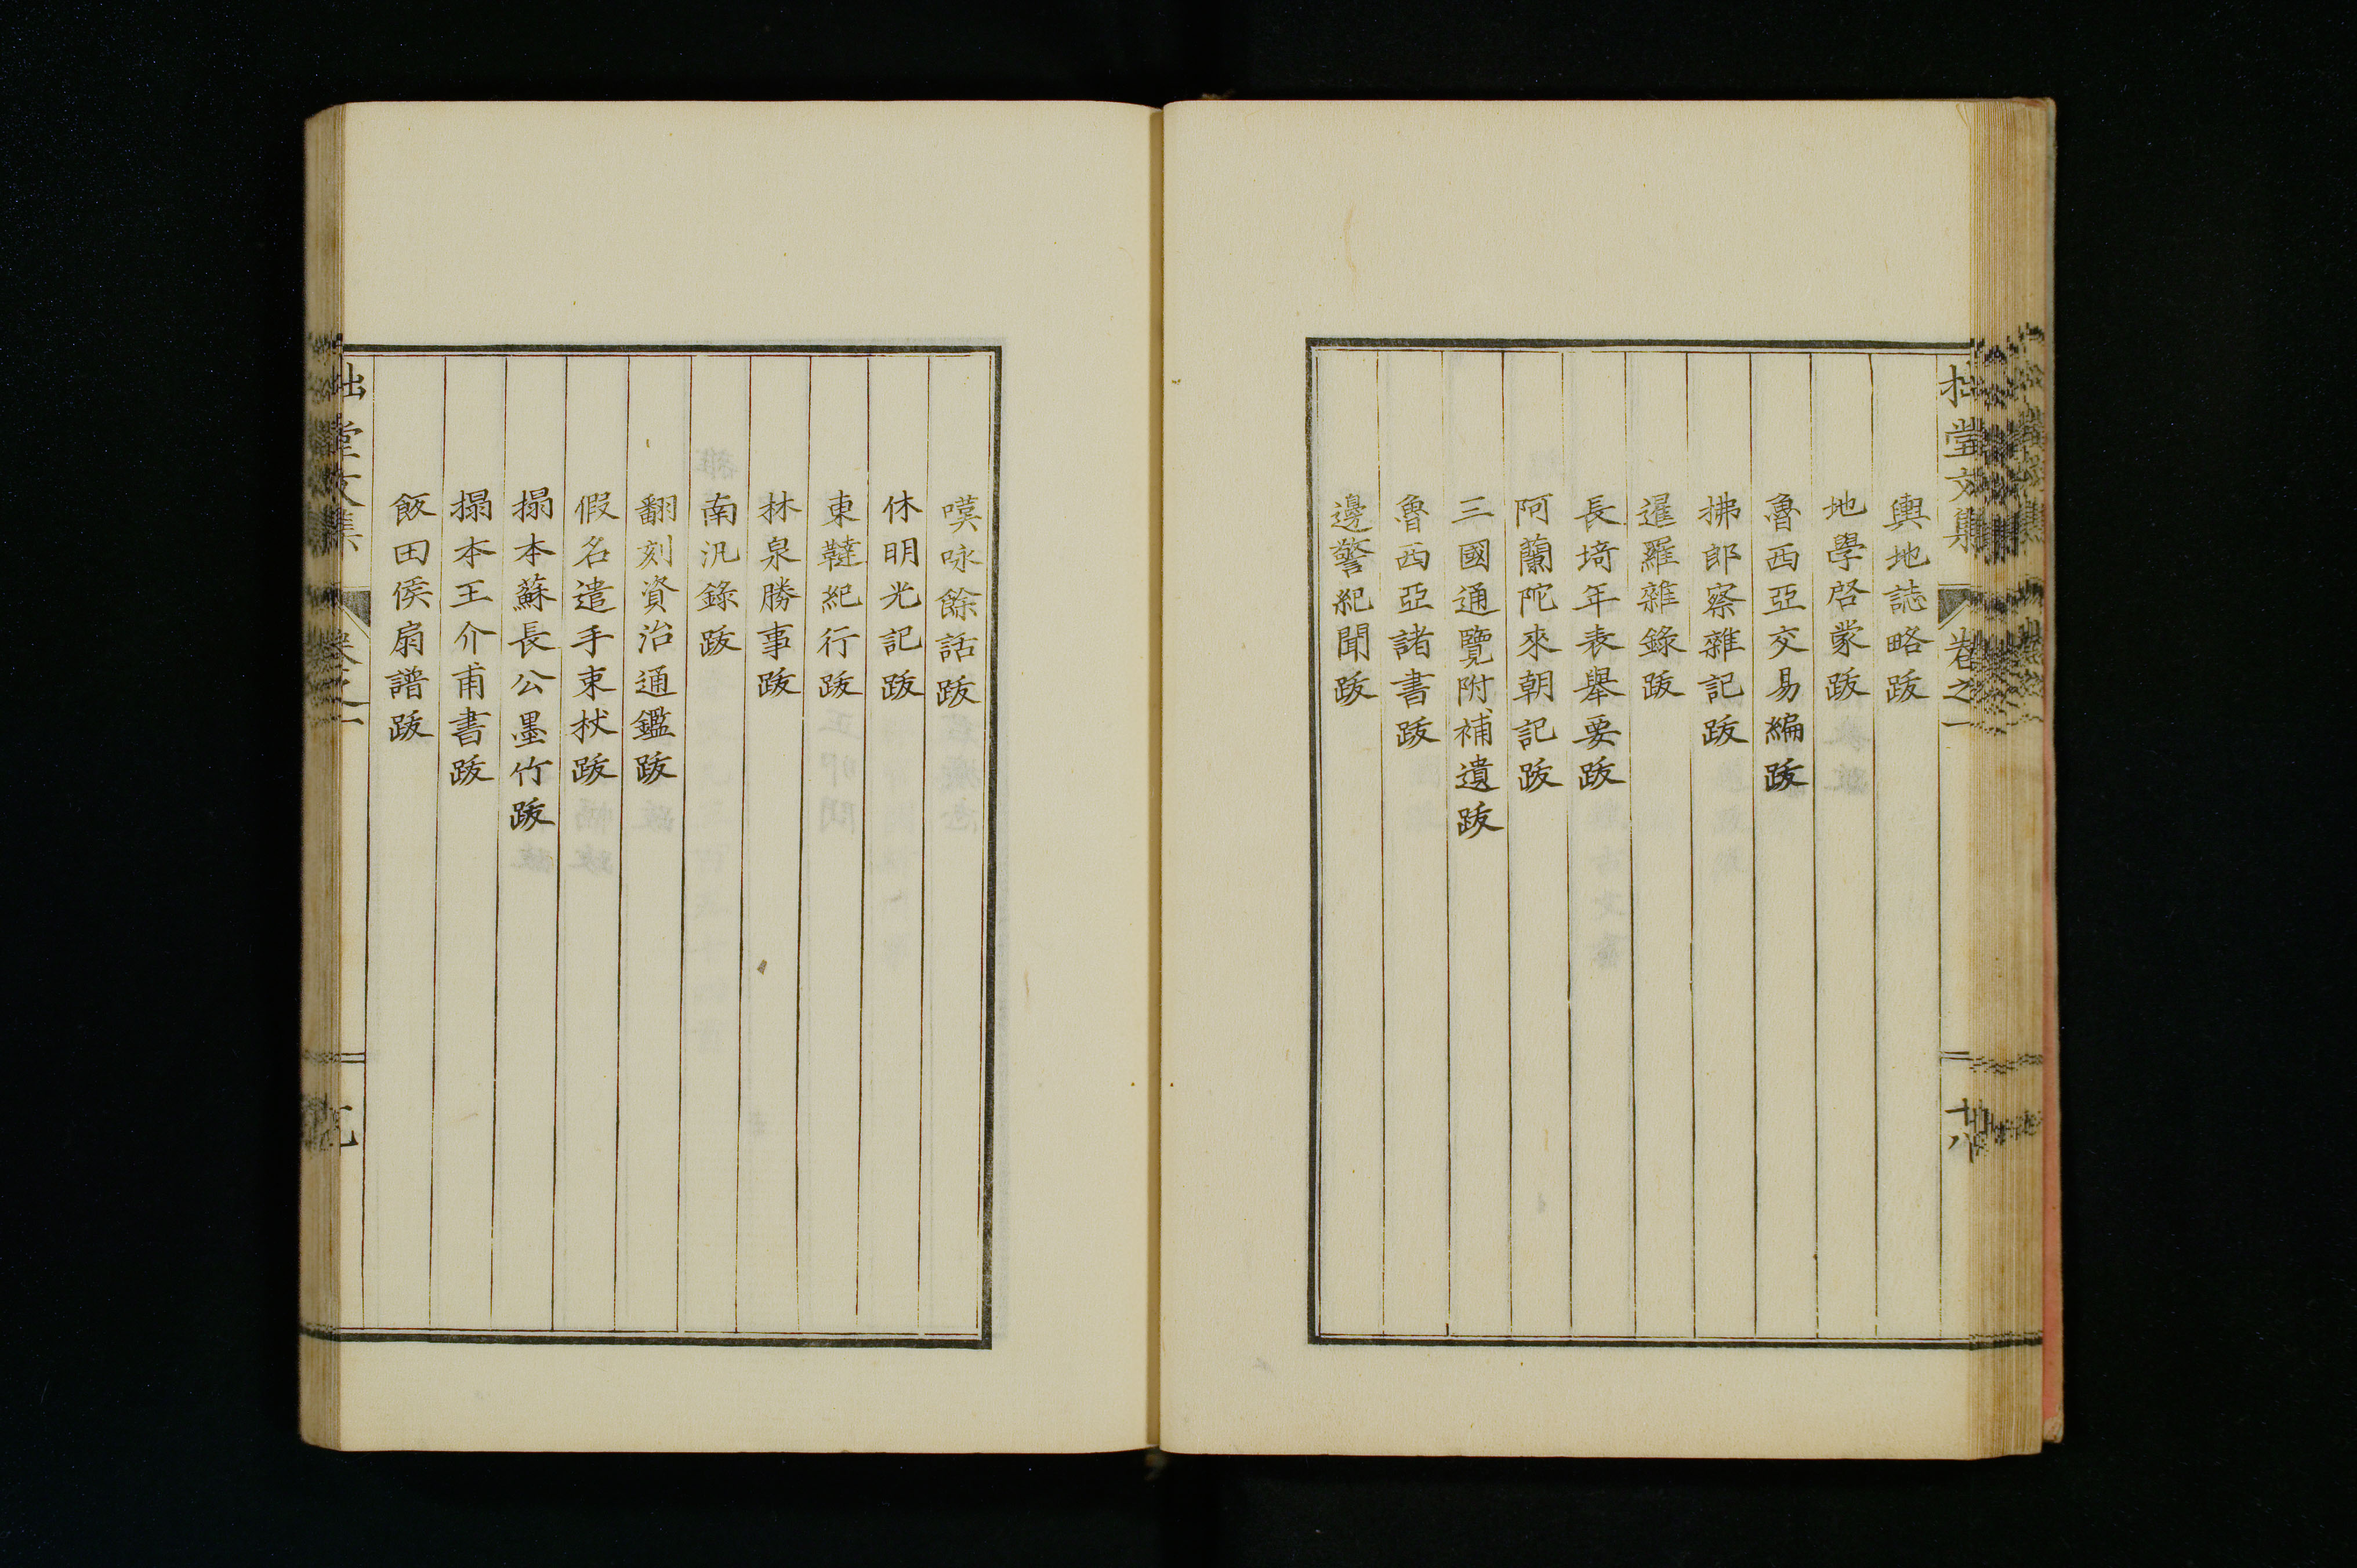 拙堂文集
卷之一
十八
輿地誌略跋
地學啓蒙跋
魯西亞交易編跋
拂郎察雜記跋
暹羅雜錄跋
長埼年表舉要跋
阿蘭陀來朝記跋
三國通覽附補遺跋
魯西亞諸書跋
邊警紀聞跋
嘆咏餘話跋
休明光記跋
東韃紀行跋
林泉勝事跋
南汎錄跋
翻刻資治通鑑跋
假名遣手束杖跋
搨本蘇長公墨竹跋
搨本王介甫書跋
飯田侯扇譜跋
拙堂文集
卷之一